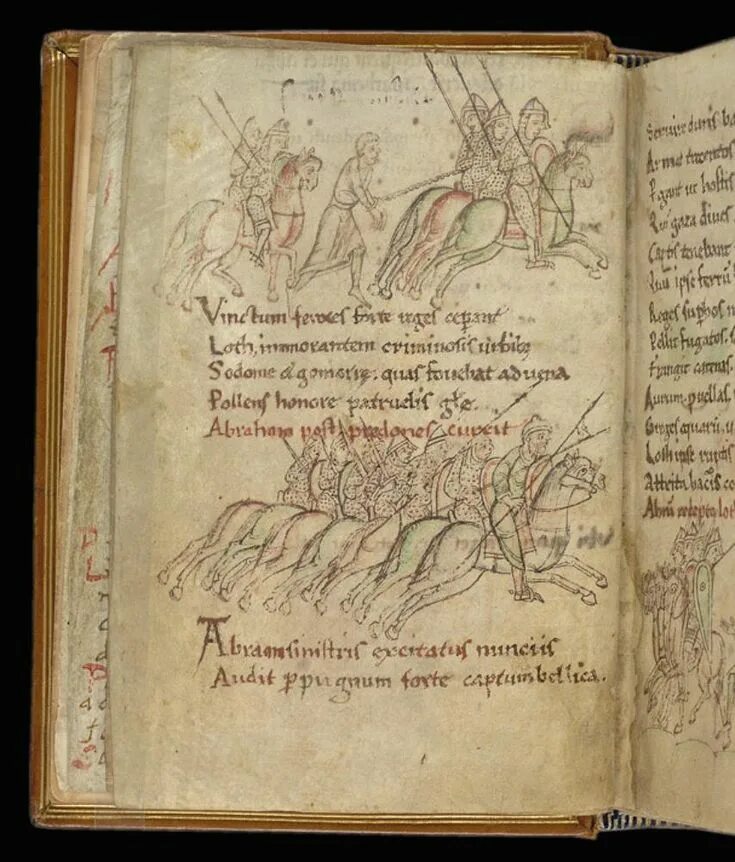 Vinctum feroces forte reges ceperant
Loth, inmorantem criminosis urbibȝ
Sodome & gomorrę. quas fouebat aduena
Pollens honore patruelis glę.
Abraham post predones currit
Abram sinistris excitatus nunciis
Audit ppinquum forte captum bellica.
Seruire duris ba
Armat trecentos
Pgant ut hostis
Que gaza diues
Captis tenebant
Qui ipse ferrū
Reges supbos m
Pellit fugatos.
Frangit catenas.
Aurum puellas.
Greges equarū. u
Loth ipse ruptis
Attrita bacis co
Abrā recepto lot